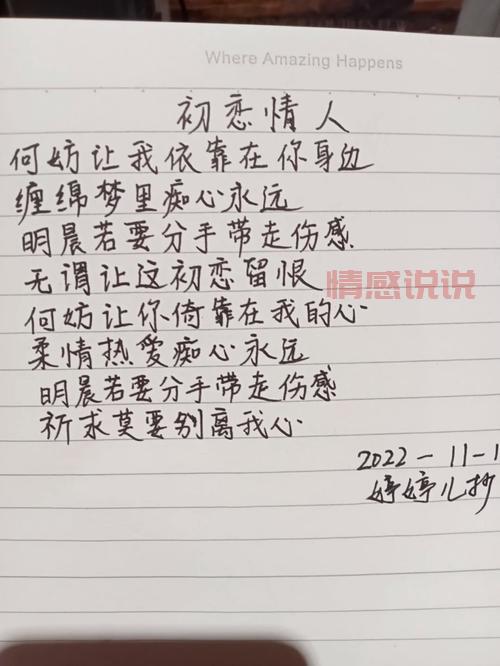 Where Amazing Happens
初恋情人
何妨让我依靠在你身边
缠绵梦里痴心永远
明晨若要分手带走伤感
无谓让这初恋留恨
情感说说
何妨让你倚靠在我的心
柔情热爱痴心永远
明晨若要分手带走伤感
祈求莫要别离我心
2022-11-1
婷婷儿抄